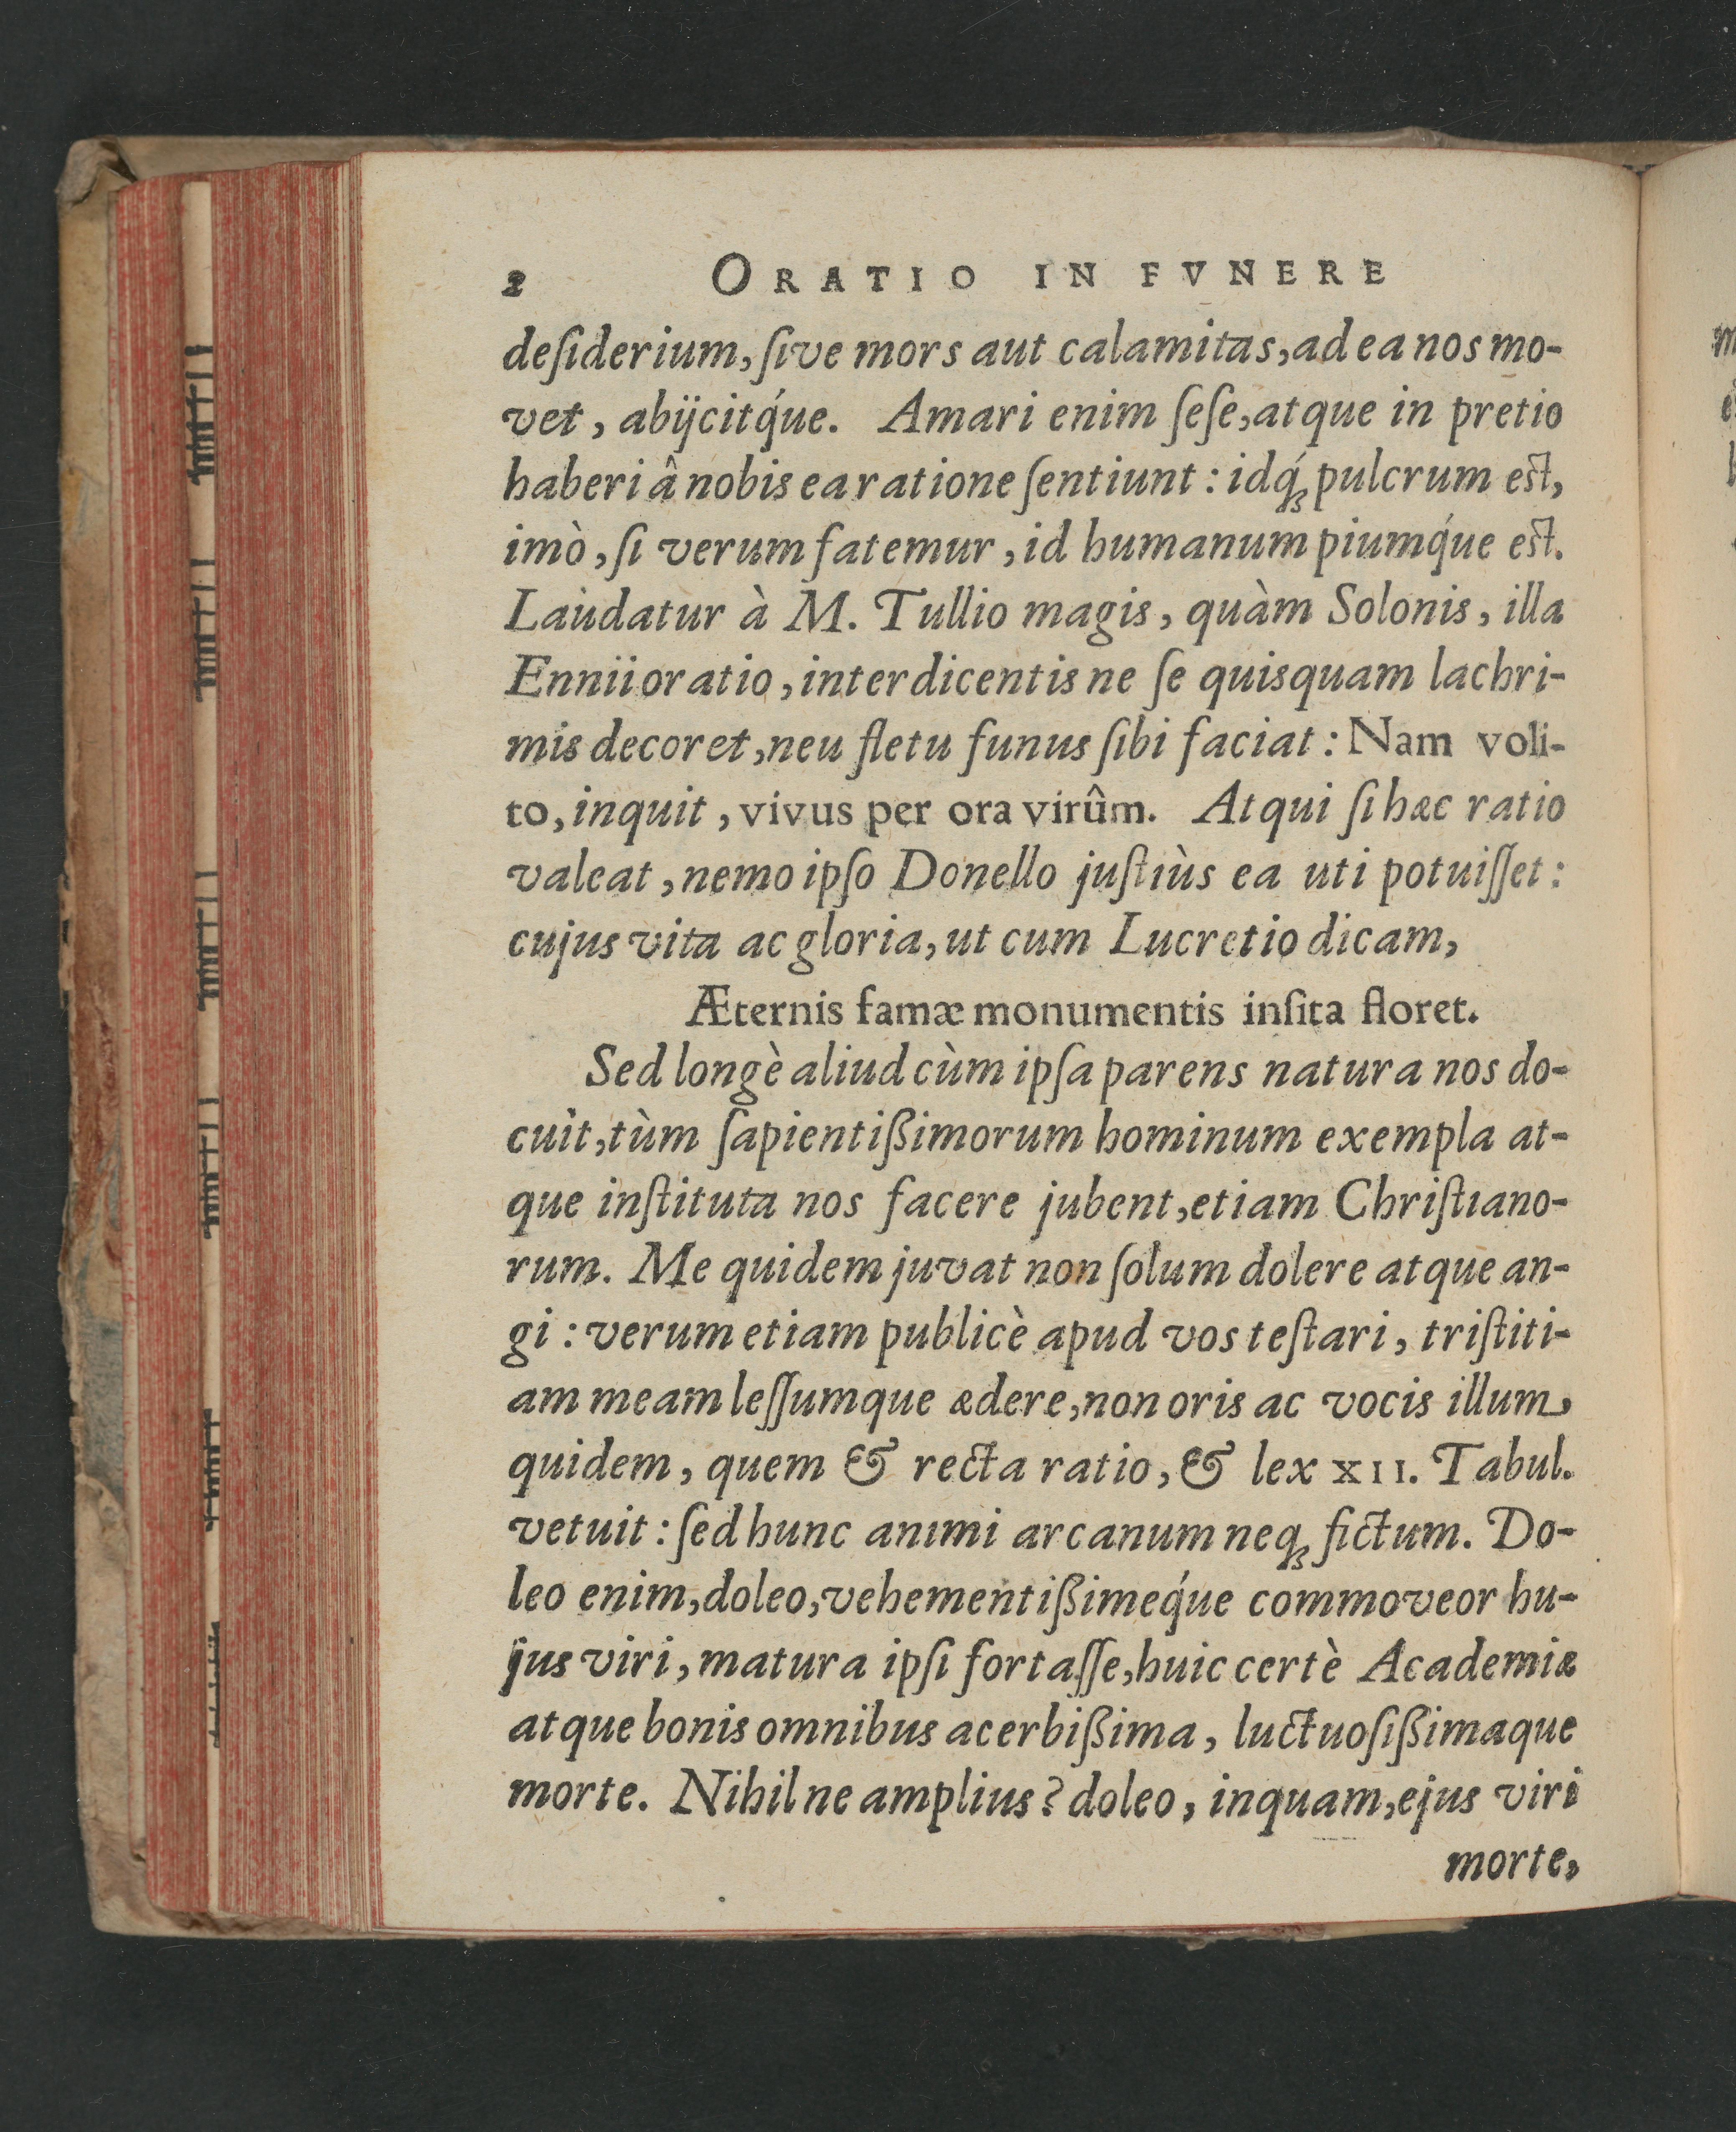 2 ORATIO IN FVNERE
deſiderium, ſive mors aut calamitas, ad ea nos mo-
vet, abijcitq́ue. Amari enim ſeſe, atque in pretio
haberi â nobis ea ratione ſentiunt: idq́ꝫ pulcrum est,
imò, ſi verum fatemur, id humanum piumq́ue est.
Laudatur à M. Tullio magis, quàm Solonis, illa
Ennii oratio, interdicentis ne ſe quisquam lachri-
mis decoret, neu fletu funus ſibi faciat: Nam voli-
to, inquit, vivus per ora virûm. Atqui ſi hæc ratio
valeat, nemo ipſo Donello juſtiùs ea uti potuiſſet:
cujus vita ac gloria, ut cum Lucretio dicam,
Æternis famæ monumentis inſita floret.
Sed longè aliud cùm ipſa parens natura nos do-
cuit, tùm ſapientißimorum hominum exempla at-
que inſtituta nos facere jubent, etiam Chriſtiano-
rum. Me quidem juvat non ſolum dolere atque an-
gi: verum etiam publicè apud vos teſtari, triſtiti-
am meam leſſumque ædere, non oris ac vocis illum
quidem, quem & recta ratio, & lex XII. Tabul.
vetuit: ſed hunc animi arcanum neqꝫ fictum. Do-
leo enim, doleo, vehementißimeq́ue commoveor hu-
jus viri, matura ipſi fortaſſe, huic certè Academiæ
atque bonis omnibus acerbißima, luctuoſißimaque
morte. Nihilne amplius? doleo, inquam, ejus viri
morte,